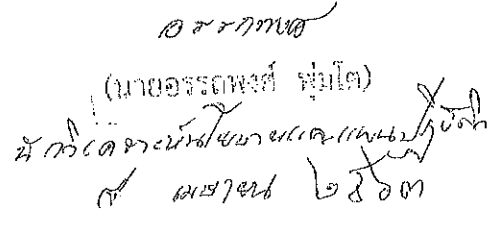 อรรถพงศ์
(นายอรรถพงศ์ พุ่มโต)
นักวิเคราะห์นโยบายและแผนปฏิบัติ
เมษายน ๒๕๖๓